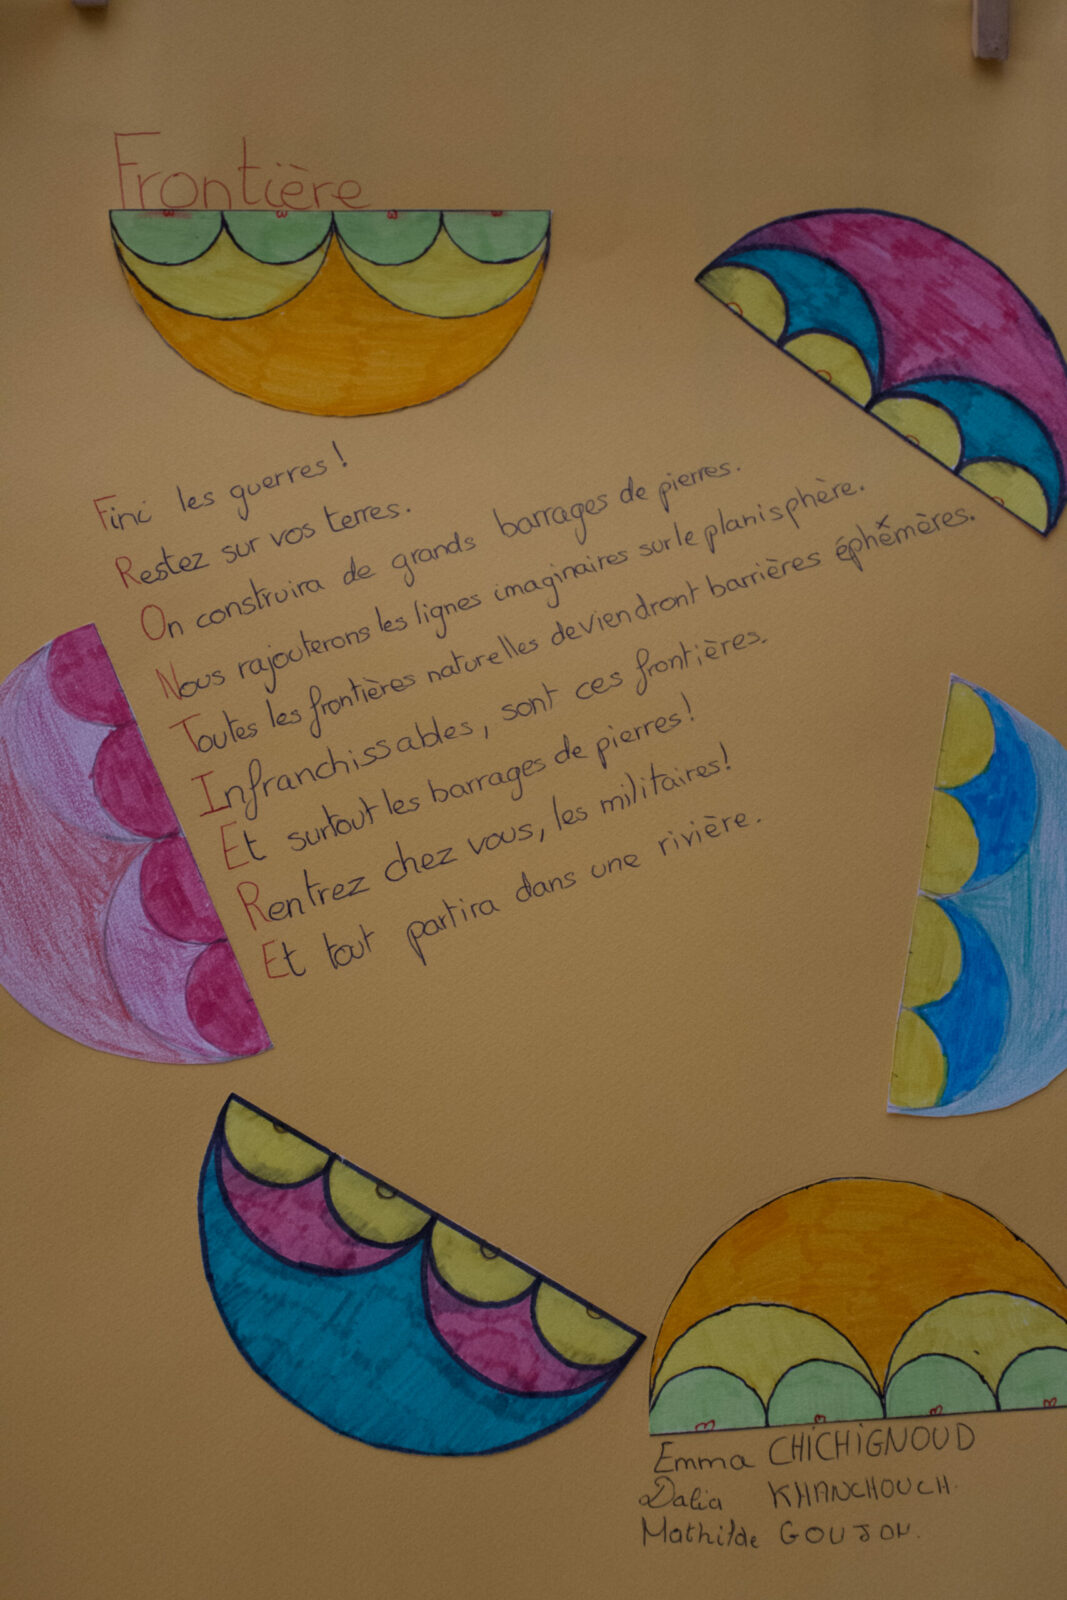 Frontière
Fini les guerres !
Restez sur vos terres.
On construira de grands barrages de pierres.
Nous rajouterons les lignes imaginaires sur le planisphère.
Toutes les frontières naturelles deviendront barrières éphémères.
Infranchissables, sont ces frontières.
Et surtout les barrages de pierres !
Rentrez chez vous, les militaires !
Et tout partira dans une rivière.
Emma CHICHIGNOUD
Dalia KHANCHOUCH.
Mathilde GOUJON.